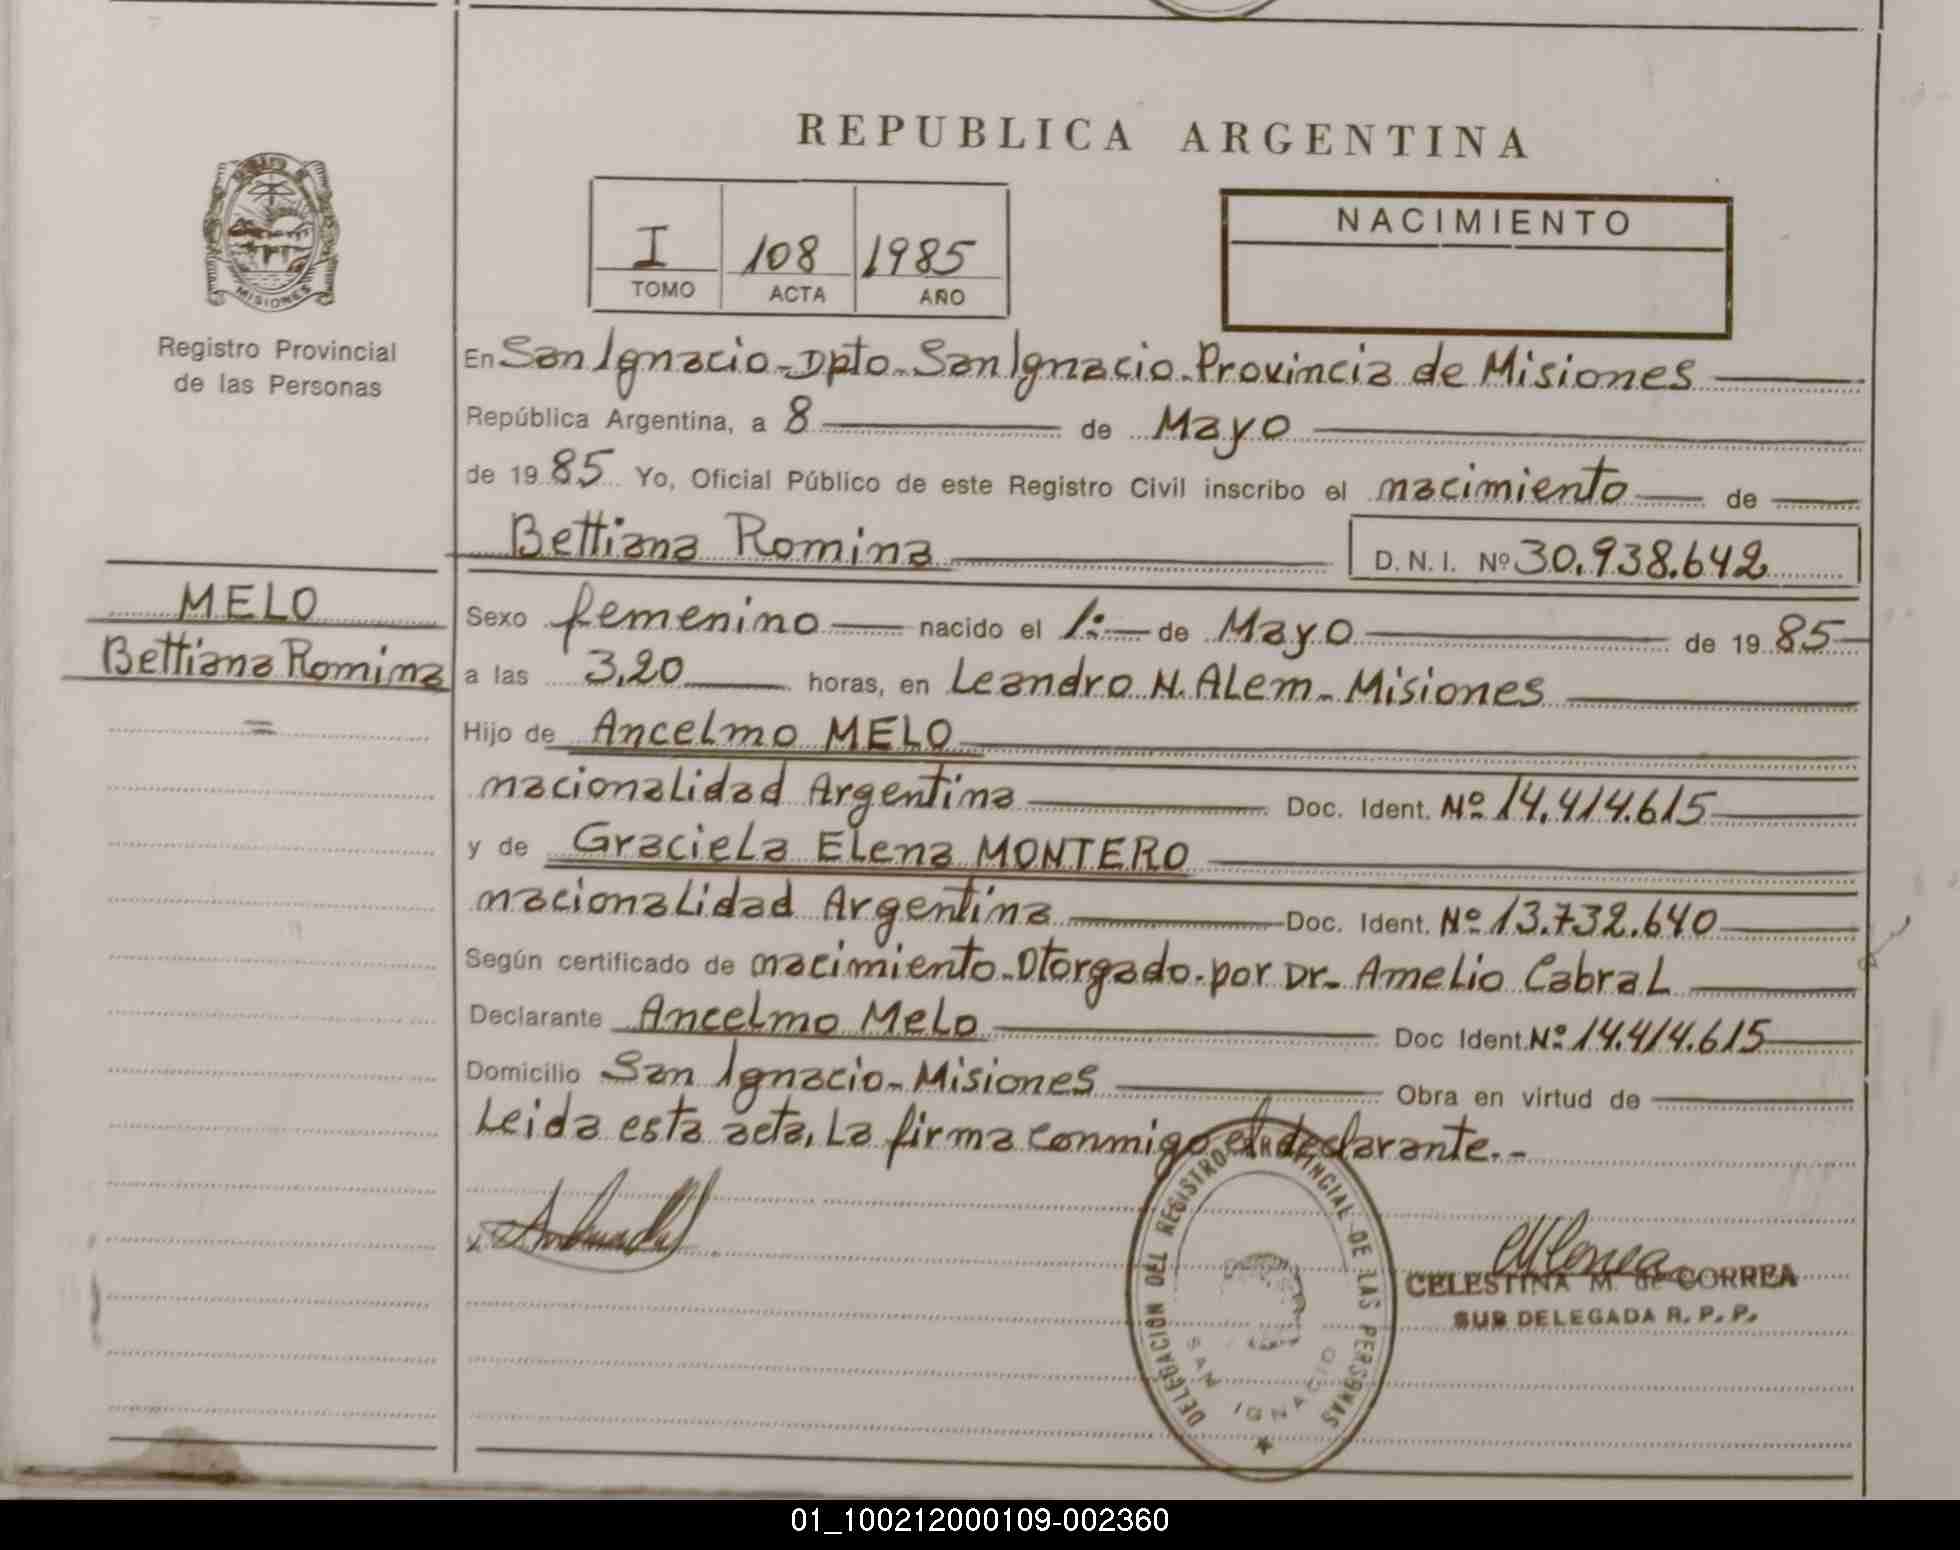 REPUBLICA ARGENTINA
MISIONES
Registro Provincial
de las Personas
I 108 1985
TOMO ACTA AÑO
NACIMIENTO
En San Ignacio - Dpto. San Ignacio. Provincia de Misiones
República Argentina, a 8 de Mayo
de 1985 Yo, Oficial Público de este Registro Civil inscribo el nacimiento de
Bettiana Romina D. N. I. Nº 30.938.642
MELO
Bettiana Romina
=
Sexo femenino nacido el 1º de Mayo de 1985
a las 3,20 horas, en Leandro N. ALem - Misiones
Hijo de Ancelmo MELO
nacionalidad Argentina Doc. Ident. Nº 14.414.615
y de Graciela Elena MONTERO
nacionalidad Argentina Doc. Ident. Nº 13.732.640
Según certificado de nacimiento - Otorgado. por Dr. Amelio Cabral
Declarante Ancelmo Melo Doc Ident. Nº 14.414.615
Domicilio San Ignacio - Misiones Obra en virtud de
Leida esta acta, La firma conmigo el declarante.-
DELEGACION DEL REGISTRO PROVINCIAL DE LAS PERSONAS
SAN IGNACIO
CELESTINA M. de CORREA
SUB DELEGADA R. P. P.
01_100212000109-002360